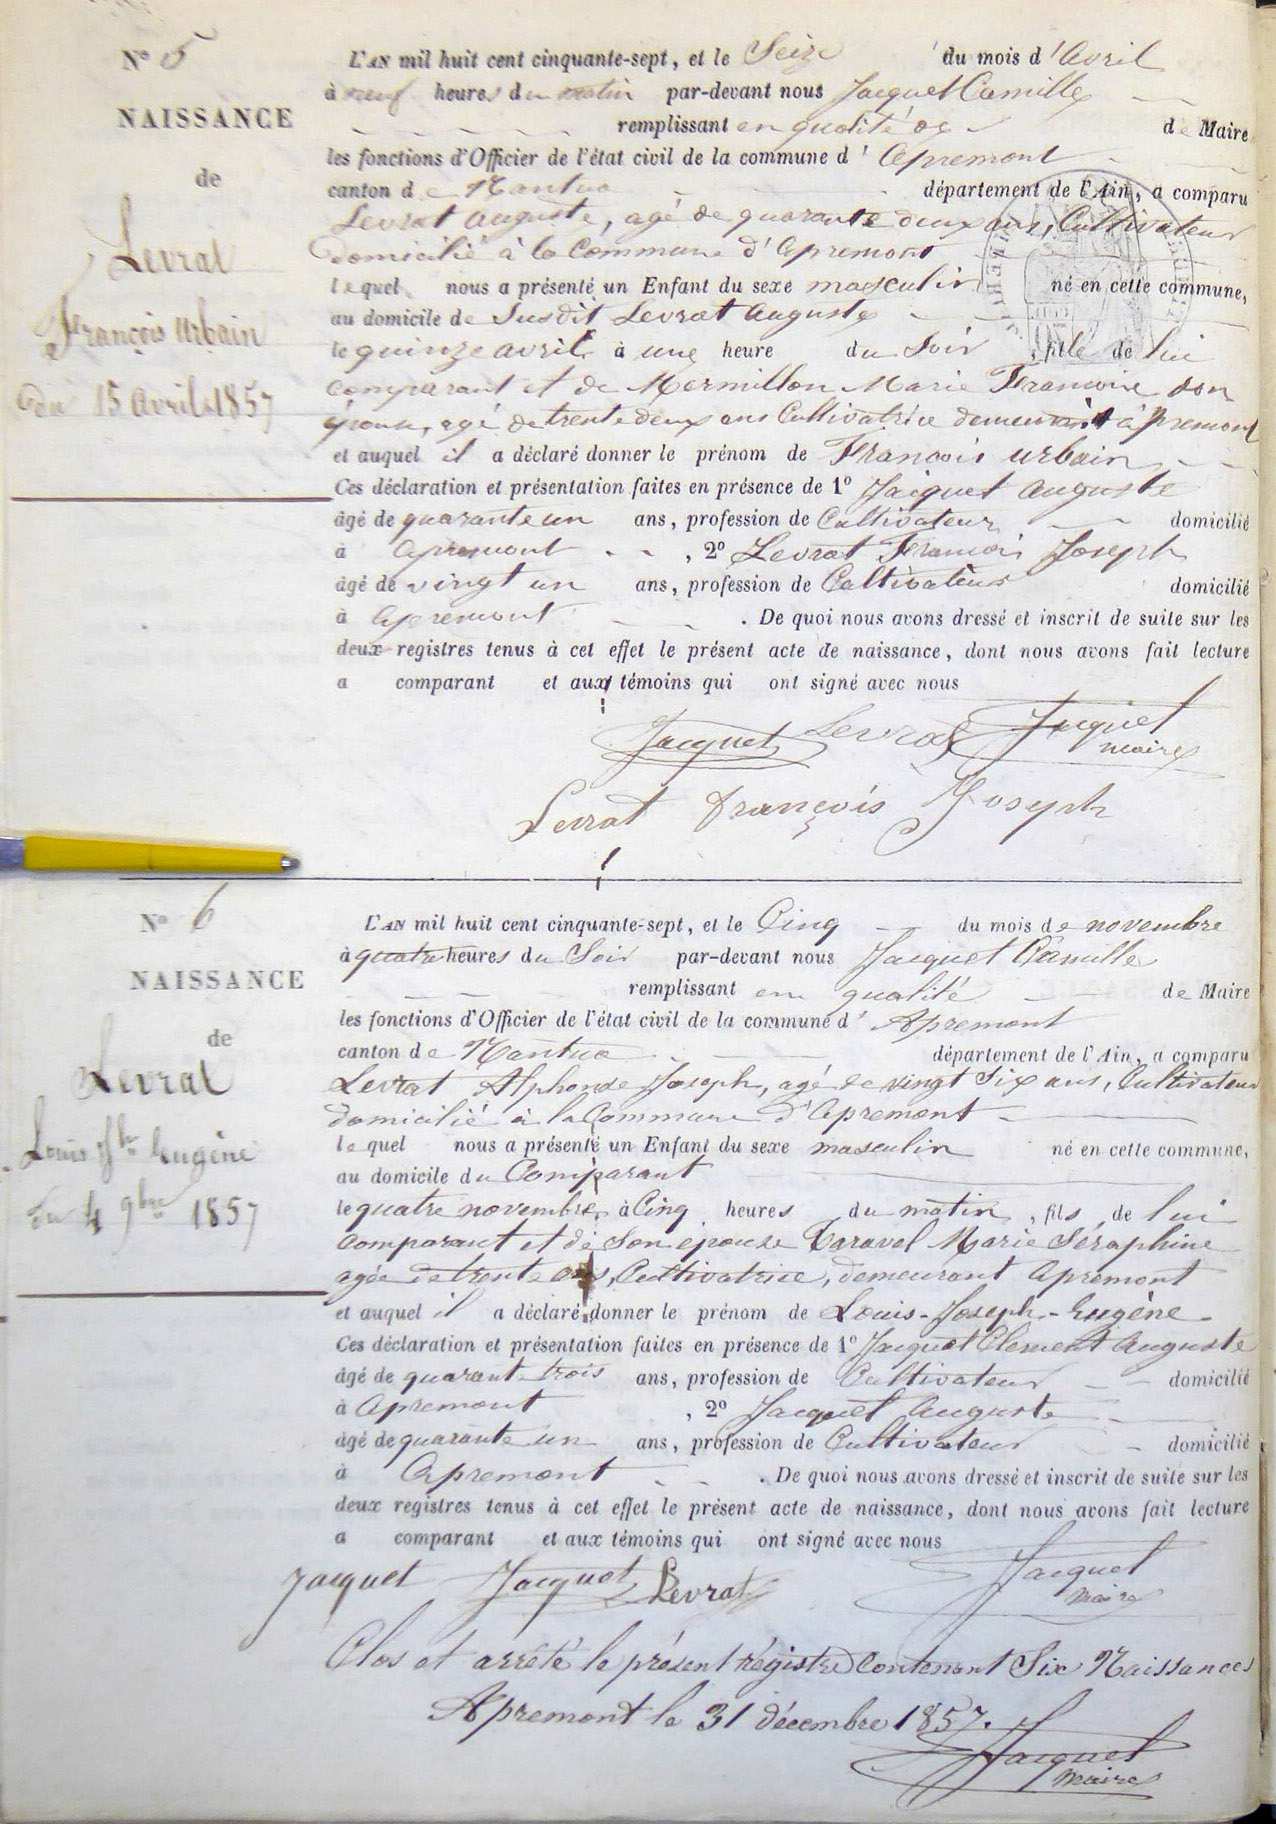 N° 5
NAISSANCE
de
Levrat
François Urbain
du 15 Avril 1857
L'AN mil huit cent cinquante-sept, et le Seize du mois d'Avril
à neuf heures du matin par-devant nous Jacquet Camille
remplissant en qualité de de Maire
les fonctions d'Officier de l'état civil de la commune d'Apremont
canton de Nantua département de l'Ain, a comparu
Levrat Auguste, agé de quarante deux ans, Cultivateur
domicilié à la Commune d'Apremont
lequel nous a présenté un Enfant du sexe masculin né en cette commune,
au domicile de Susdit Levrat Auguste
le quinze avril à une heure du Soir, fils de lui
comparant et de Mermillon Marie Françoise son
épouse, agé de trente deux ans Cultivatrice demeurant à Apremont
et auquel il a déclaré donner le prénom de François urbain
Ces déclaration et présentation faites en présence de 1° Jacquet Auguste
âgé de quarante un ans, profession de Cultivateur domicilié
à Apremont, 2° Levrat François Joseph
âgé de vingt un ans, profession de Cultivateur domicilié
à Apremont. De quoi nous avons dressé et inscrit de suite sur les
deux registres tenus à cet effet le présent acte de naissance, dont nous avons fait lecture
a comparant et aux témoins qui ont signé avec nous
Jacquet Levrat Jacquet
maire
Levrat François Joseph
N° 6
NAISSANCE
de
Levrat
Louis Jph Eugène
du 4 9bre 1857
L'AN mil huit cent cinquante-sept, et le Cinq du mois de novembre
à quatre heures du Soir par-devant nous Jacquet Camille
remplissant en qualité de Maire
les fonctions d'Officier de l'état civil de la commune d'Apremont
canton de Nantua département de l'Ain, a comparu
Levrat Alphonse Joseph, agé de vingt Six ans, Cultivateur
domicilié à la Commune d'Apremont
lequel nous a présenté un Enfant du sexe masculin né en cette commune,
au domicile du Comparant
le quatre novembre à Cinq heures du matin, fils de lui
Comparant et de Son épouse Taravel Marie Séraphine
agée de trente ans, Cultivatrice, demeurant Apremont
et auquel il a déclaré donner le prénom de Louis-Joseph-Eugène
Ces déclaration et présentation faites en présence de 1° Jacquet Clement Auguste
âgé de quarante trois ans, profession de Cultivateur domicilié
à Apremont, 2° Jacquet Auguste
âgé de quarante un ans, profession de Cultivateur domicilié
à Apremont. De quoi nous avons dressé et inscrit de suite sur les
deux registres tenus à cet effet le présent acte de naissance, dont nous avons fait lecture
a comparant et aux témoins qui ont signé avec nous
Jacquet Jacquet Levrat Jacquet
maire
Clos et arrêté le présent régistre Contenant Six Naissances
Apremont le 31 décembre 1857.
Jacquet
maire